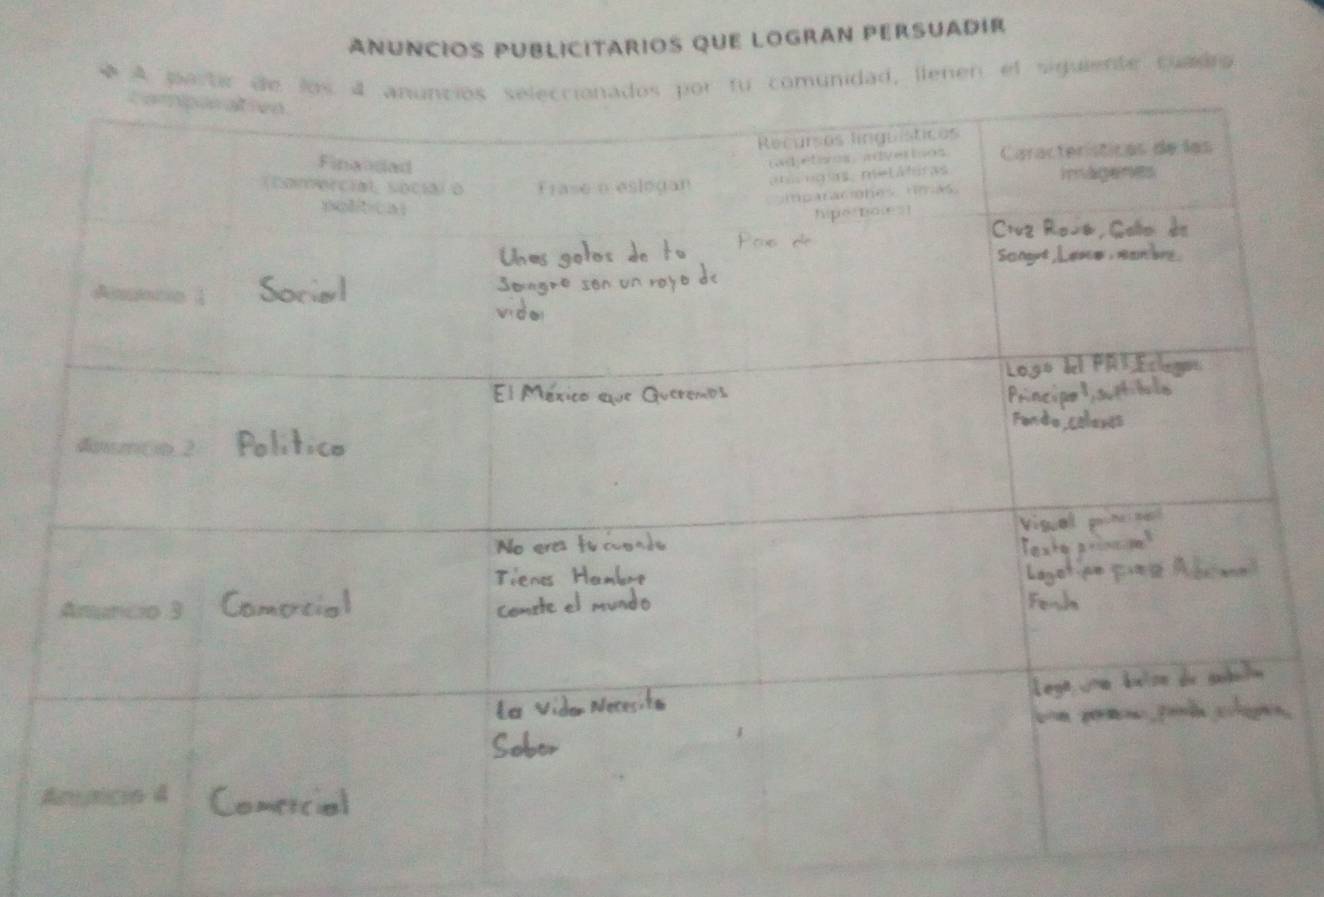 ANUNCIOS PUBLICITARIOS QUE LOGRAN PERSUADIR
A partir de los 4 anuncios seleccionados por tu comunidad, llenen el siguiente cuadro
comparativo.
Finalidad
(comercial, social o
política)
Frase o eslogan
Recursos lingüísticos
(adjetivos, adverbios,
analogías, metáforas,
comparaciones, rimas,
hipérboles)
Características de las
imágenes
Anuncio 1
Social
Unas gotas de tu
Sangre son un rayo de
vida
Cruz Roja, Gota de
Sangre,
Anuncio 2
Politico
El México que Queremos
Logo del PRI, Eslogan
Principal,
Fondo, colores
Anuncio 3
Comercial
No eres tu cuando
Tienes Hambre
comete el mundo
Visual principal
Texto principal
Logotipo
Fondo
Anuncio 4
Comercial
La vida Necesita
Sabor
Logo, una
una